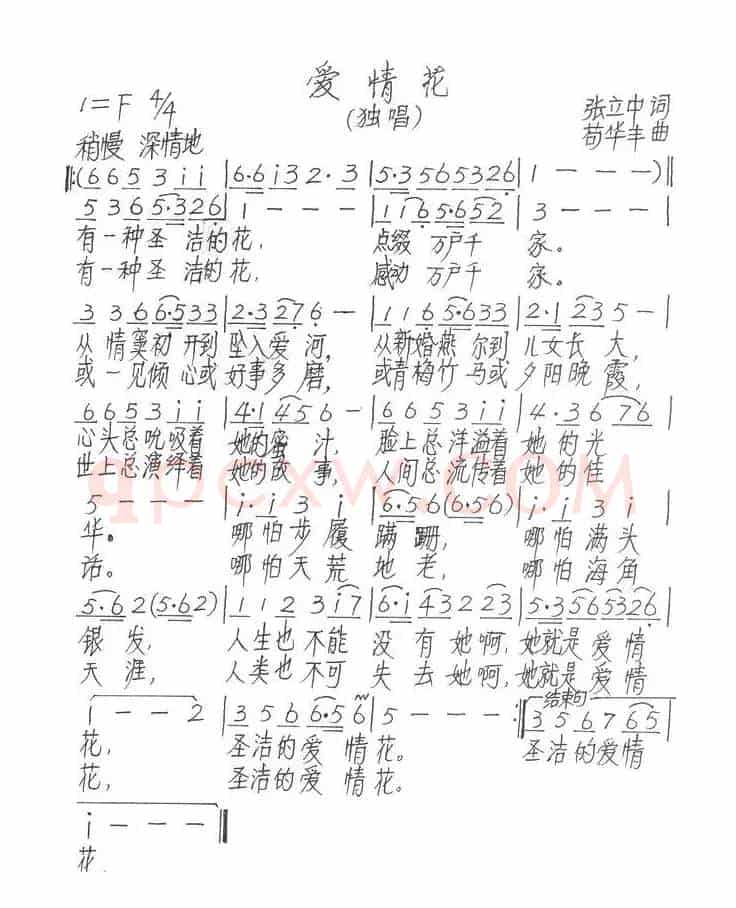 爱情花
(独唱)
1=F 4/4
张立中 词
稍慢 深情地
苟华丰 曲
‖:(6 6 5 3 i i |6·6 i 3 2·3 |5·3 5 6 5 3 2 6 | 1 - - - )‖
5 3 6 5·3 2 6 | 1 - - - | 1 1 6 5·6 5 2 | 3 - - - |
有一种圣 洁的花, 点缀 万户千 家。
有一种圣 洁的花, 感动 万户千 家。
3 3 6 6·5 3 3 |2·3 2 7 6 - | 1 1 6 5·6 3 3 | 2·1 2 3 5 - |
从 情窦初 开到 坠入爱 河, 从新婚燕 尔到 儿女长 大,
或一见倾 心或 好事多 磨, 或青梅竹 马或 夕阳晚 霞,
6 6 5 3 i i | 4·1 4 5 6 - | 6 6 5 3 i i | 4·3 6 7 6 |
心头总吮吸着 她的蜜 汁, 脸上总洋溢着 她 的光
世上总演绎着 她的故 事, 人间总流传着 她 的佳
qpcxw.com
5 - - - | i·i 3 i |6·5 6 (6·5 6) | i·i 3 i |
华。 哪怕步履 蹒 跚, 哪怕满头
话。 哪怕天荒 地 老, 哪怕海角
5·6 2 (5·6 2) | 1 1 2 3 i 7 |6·i 4 3 2 2 3 |5·3 5 6 5 3 2 6 |
银 发, 人生也 不能 没 有 她啊, 她就是 爱 情
天 涯, 人类也 不可 失 去 她啊, 她就是 爱 情
结束句
i - - 2 | 3 5 6 6·5 6 | 5 - - - :‖ 3 5 6 7 6 5 |
花, 圣洁的爱 情花。 圣洁的爱情
花, 圣洁的爱 情花。
i - - - ‖
花.